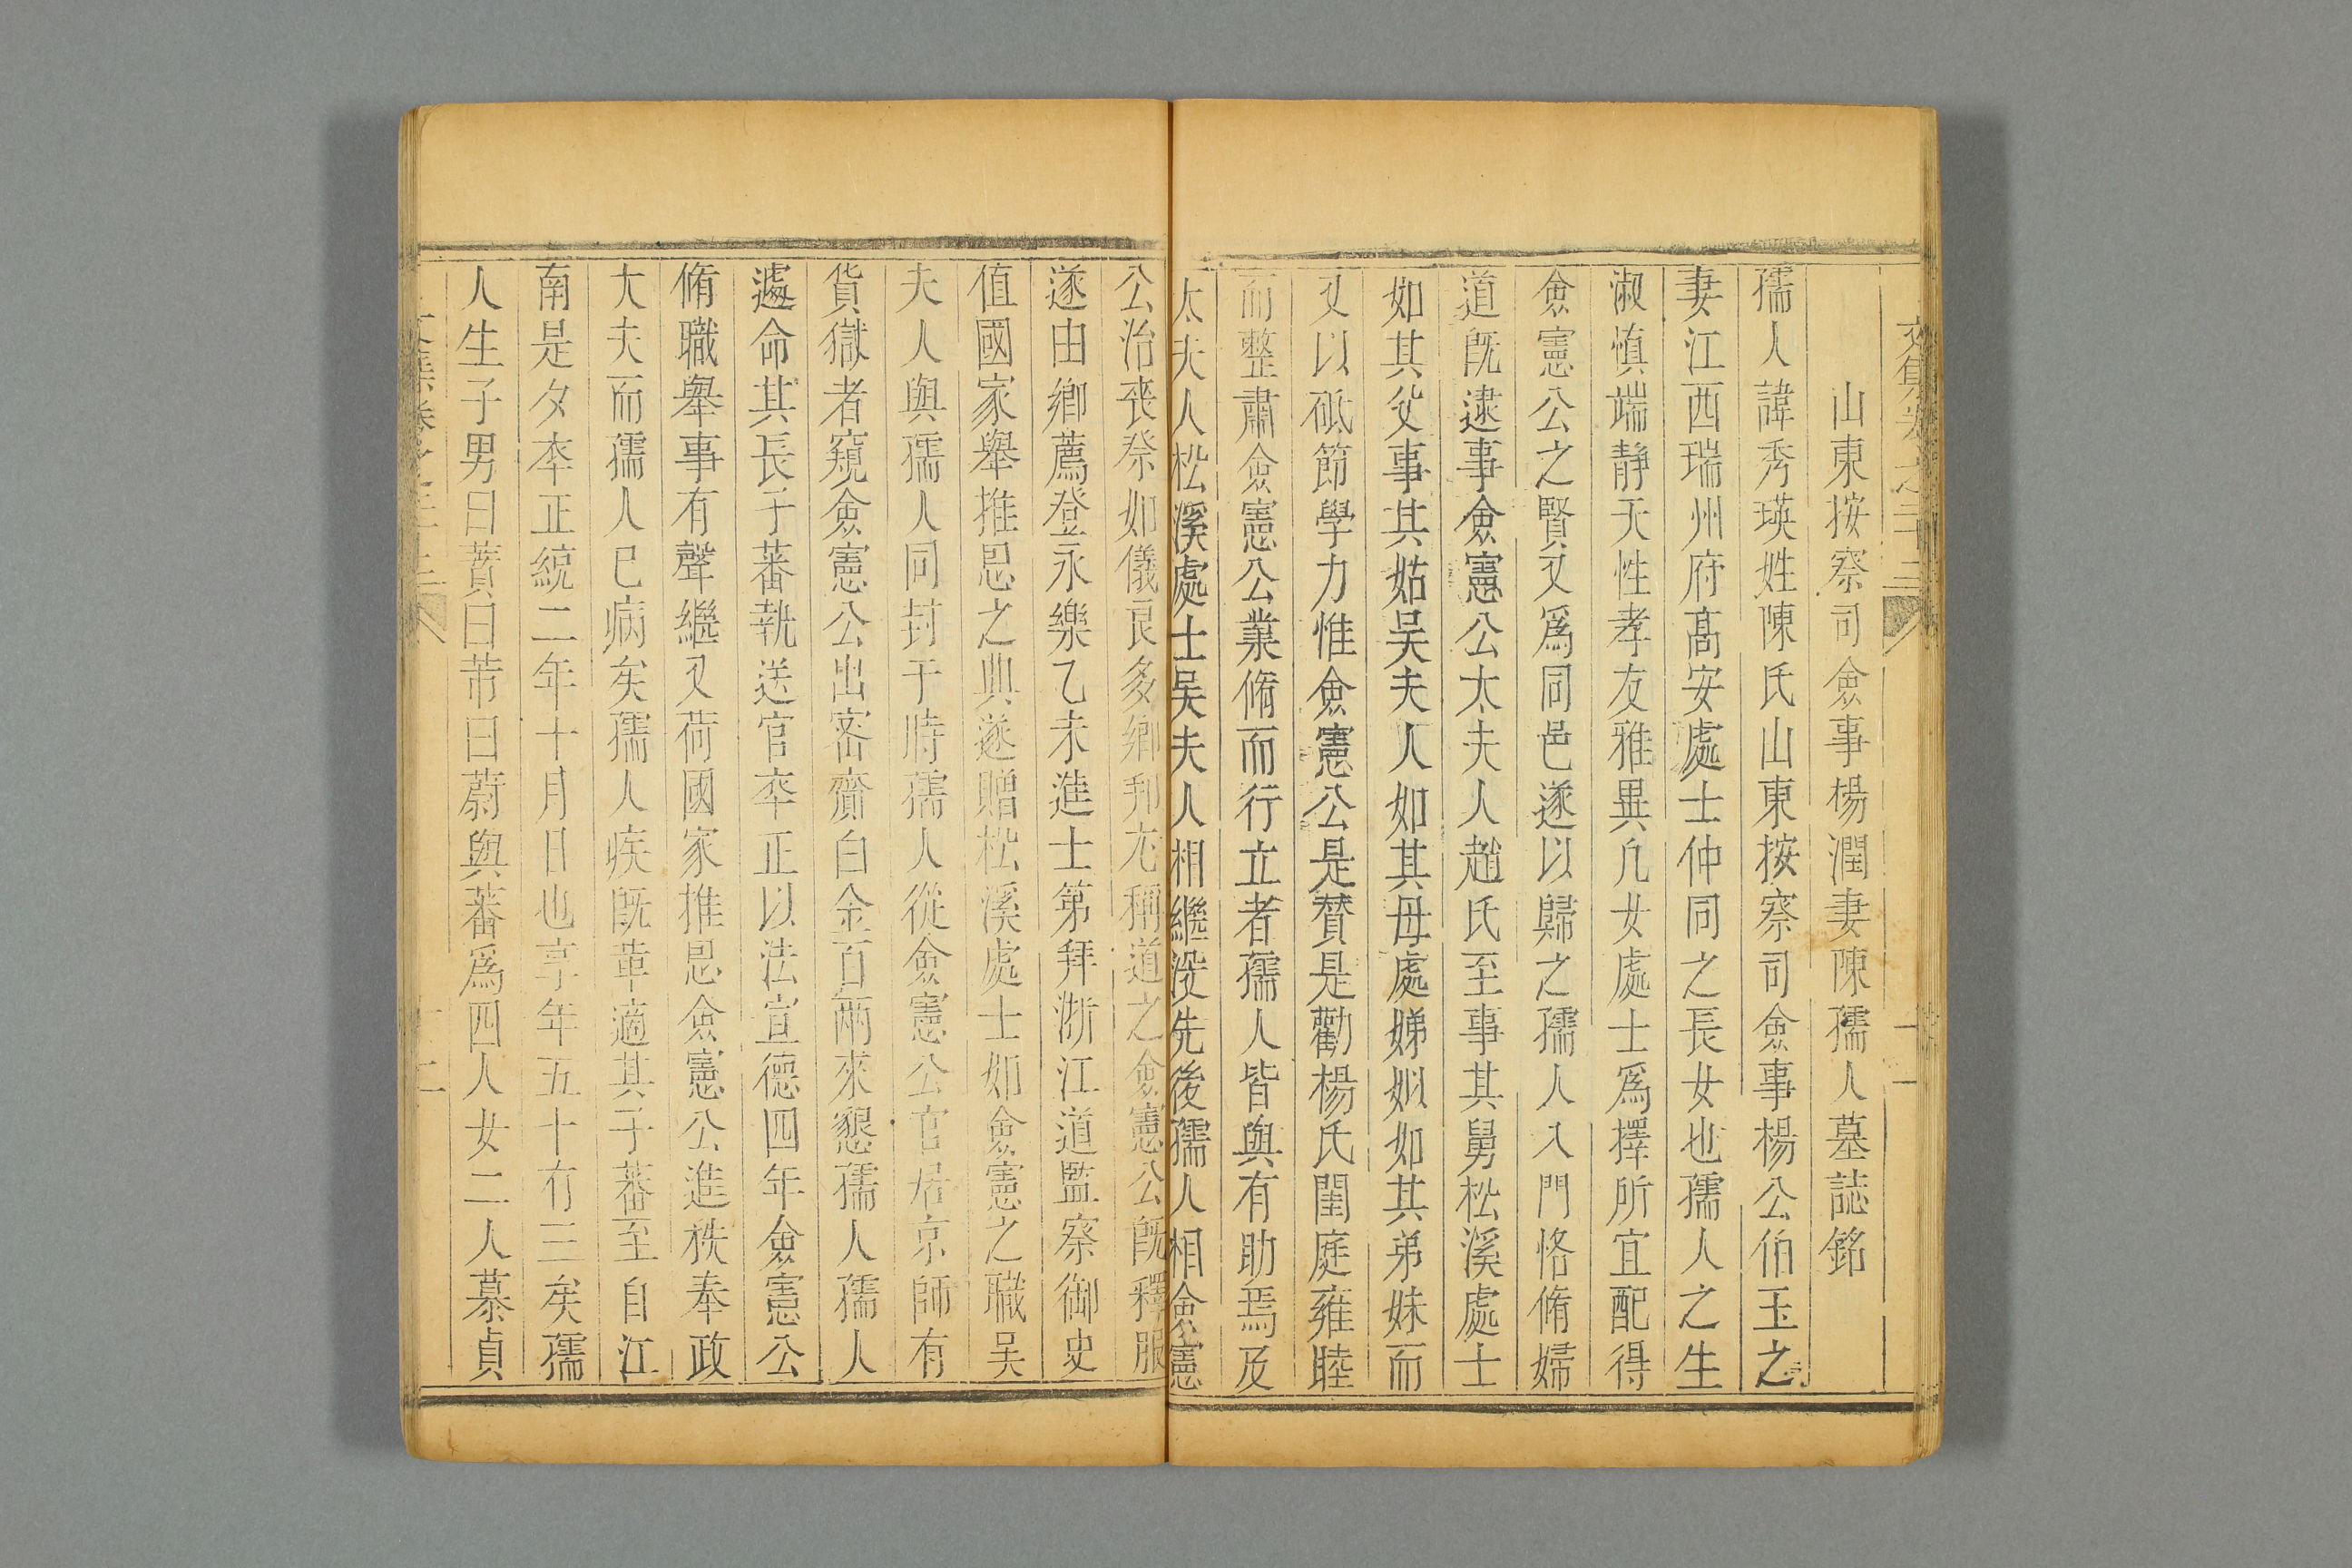 文集卷之二十三
山東按察司僉事楊潤妻陳孺人墓誌銘
孺人諱秀瑛姓陳氏山東按察司僉事楊公伯玉之
妻江西瑞州府髙安處士仲同之長女也孺人之生
淑慎端静天性孝友雅異凢女處士爲擇所宜配得
僉憲公之賢又爲同邑遂以歸之孺人入門恪脩婦
道旣逮事僉憲公太夫人趙氏至事其舅松溪處士
如其父事其姑吴夫人如其母處娣姒如其弟妹而
又以砥節學力惟僉憲公是賛是勸楊氏閨庭雍睦
而整肅僉憲公業脩而行立者孺人皆與有助焉及
太夫人松溪處士吴夫人相繼没先後孺人相僉憲
公治丧祭如儀哀多鄉邦尤稱道之僉憲公旣釋服
遂由鄉薦登永樂乙未進士第拜浙江道監察御史
值國家舉推恩之典遂贈松溪處士如僉憲之職吴
夫人與孺人同封于時孺人從僉憲公官居京師有
貨獄者窺僉憲公出宻齎白金百兩來懇孺人孺人
遽命其長子蕃執送官卒正以法宣德四年僉憲公
脩職舉事有聲繼又荷國家推恩僉憲公進秩奉政
大夫而孺人已病矣孺人疾旣革適其子蕃至自江
南是夕卒正統二年十月日也享年五十有三矣孺
人生子男曰蕡曰芾曰蔚與蕃爲四人女二人慕貞